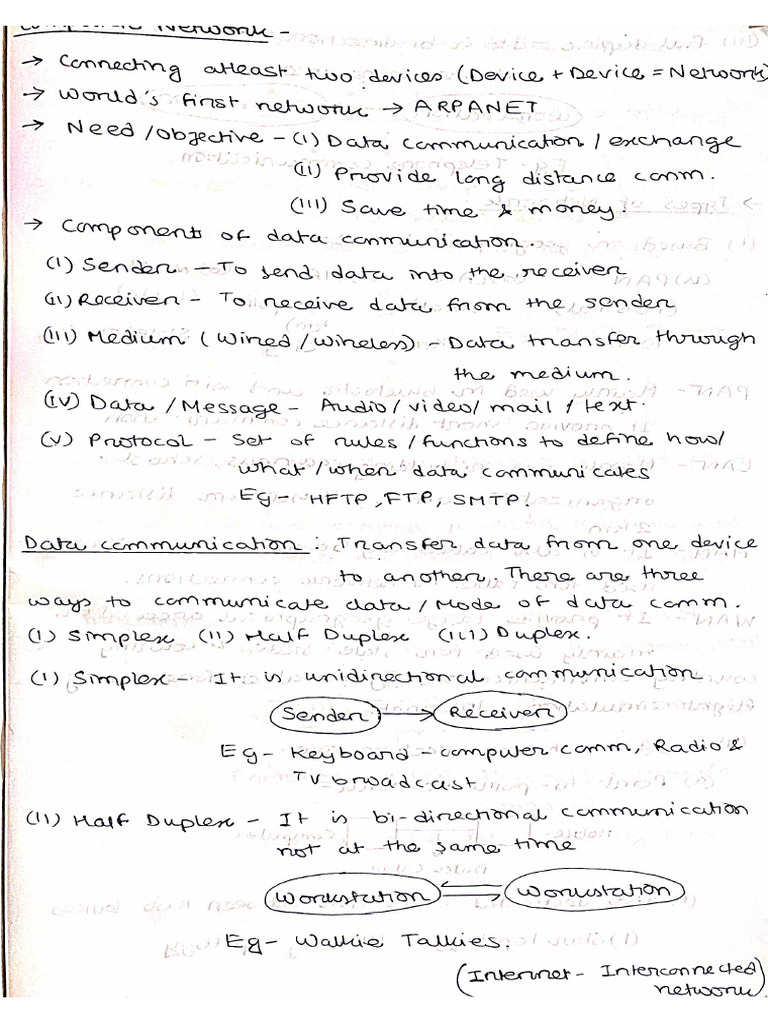 Computer Network -
→ Connecting atleast two devices (Device + Device = Network)
→ World's first network → ARPANET
→ Need / Objective - (I) Data communication / exchange
(II) Provide long distance comm.
(III) Save time & money.
→ Components of data communication.
(I) Sender - To send data into the receiver
(II) Receiver - To receive data from the sender
(III) Medium (Wired / Wireless) - Data transfer through
the medium.
(IV) Data / Message - Audio / video / mail / text.
(V) Protocol - Set of rules / functions to define how/
what / when data communicates
Eg - HFTP, FTP, SMTP.
Data communication : Transfer data from one device
to another. There are three
ways to communicate data / Mode of data comm.
(I) Simplex (II) Half Duplex (III) Duplex.
(I) Simplex - It is unidirectional communication
Sender → Receiver
Eg - Keyboard - computer comm, Radio &
TV broadcast
(II) Half Duplex - It is bi-directional communication
not at the same time
Workstation Workstation
Eg - Walkie Talkies.
(Internet - Interconnected
network)